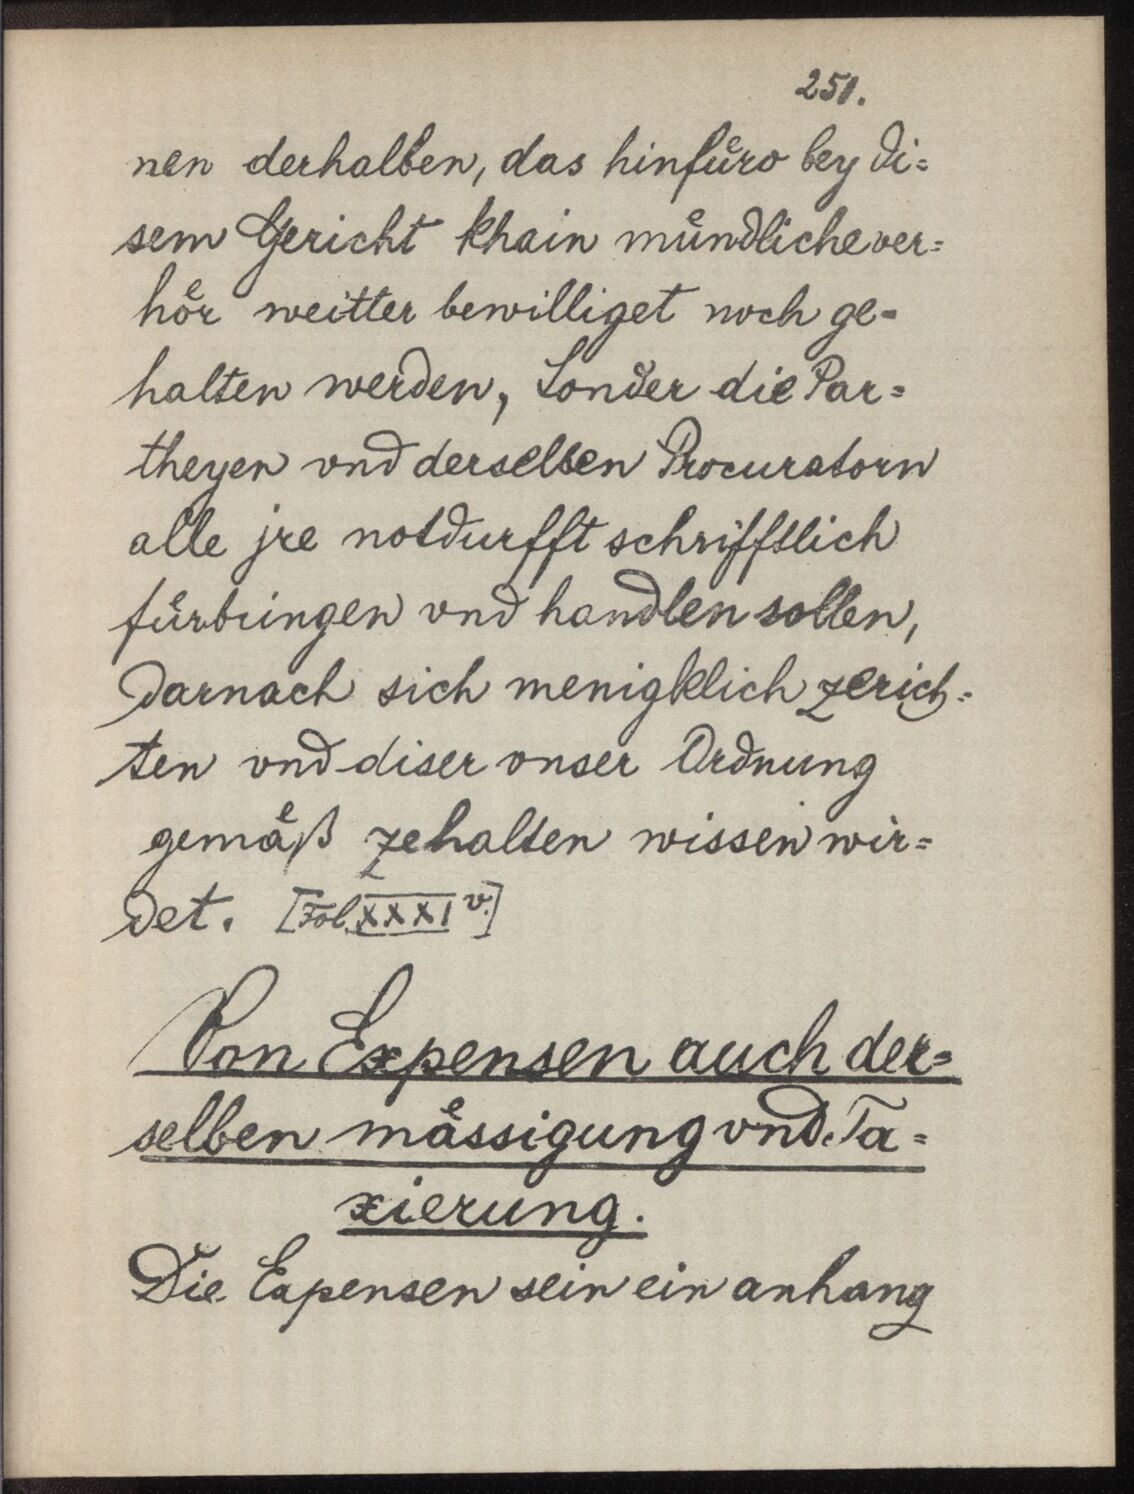 251.
nen derhalben, das hinfuͤro bey di=
sem Gericht khain muͤndliche ver=
hoͤr weitter bewilliget noch ge=
halten werden, Sonder die Par=
theyen vnd derselben Procuratorn
alle jre notdurfft schrifftlich
fuͤrbringen vnd handlen sollen,
Darnach sich menigklich zerich=
ten vnd diser vnser Ordnung
gemaͤß zehalten wissen wir=
det. [Fol. XXXI v.]
Von Expensen auch der=
selben maͤssigung vnd Ta=
xierung.
Die Expensen sein ein anhang